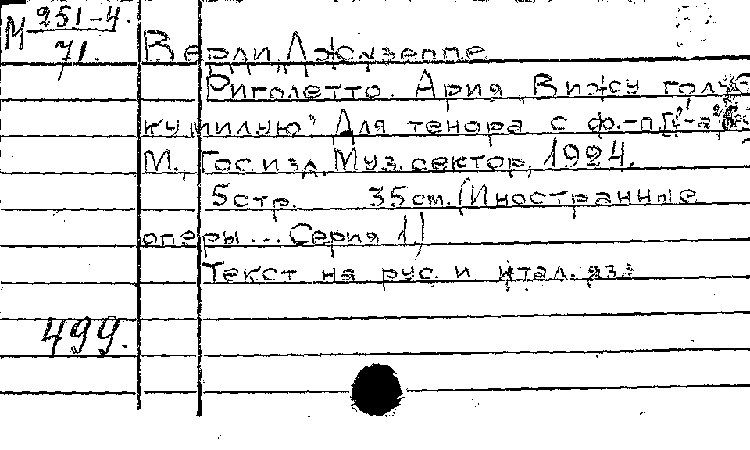 М 251-4.
71.
Верди, Джузеппе
Риголетто. Ария „Вижу голуб
ку милую“. Для тенора с ф.-п.
М., Госизд. Муз. сектор, 1924.
5 стр. 35 см. (Иностранные
оперы... Серия 1.)
Текст на рус. и итал. яз.
499.